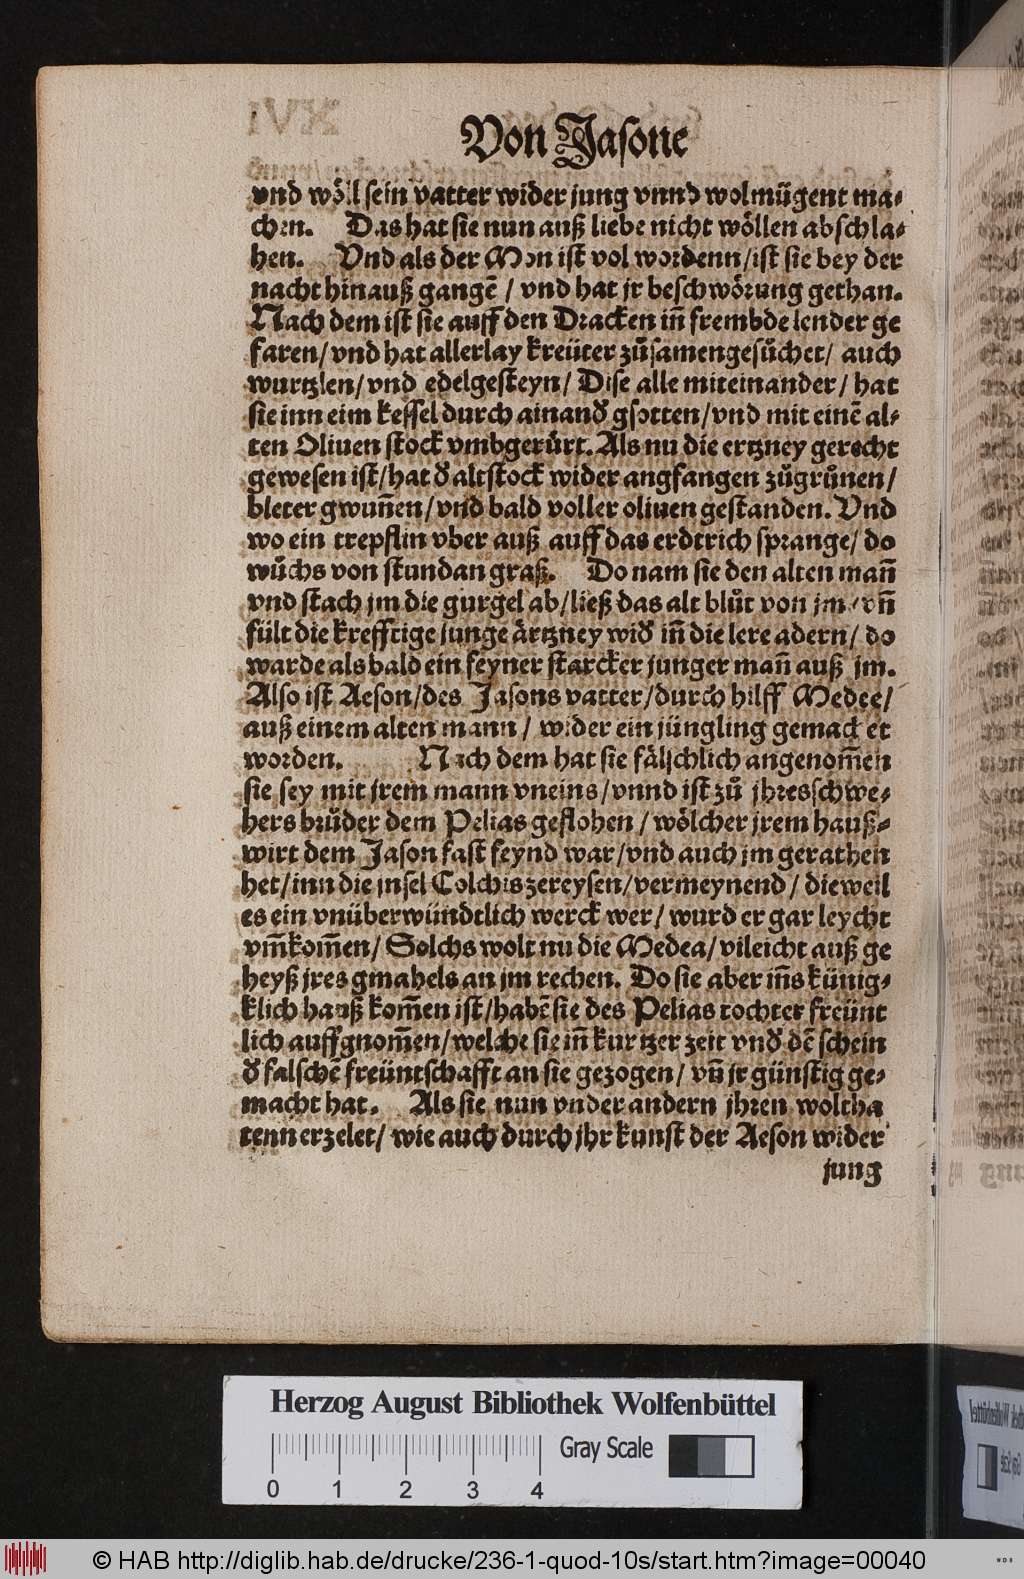 Von Jasone
vnd wöll sein vatter wider jung vnnd wolmügent ma-
chen. Das hat sie nun auß liebe nicht wöllen abschla-
hen. Vnd als der Mon ist vol wordenn/ist sie bey der
nacht hinauß gangē / vnd hat jr beschwörung gethan.
Nach dem ist sie auff den Dracken iñ frembde lender ge
faren/vnd hat allerlay kreüter zůsamengesůchet/ auch
wurtzlen/vnd edelgesteyn/ Dise alle miteinander/ hat
sie inn eim kessel durch ainand̄ gsotten/vnd mit einē al-
ten Oliuen stock vmbgerůrt. Als nu die ertzney gerecht
gewesen ist/hat d̄ altstock wider angfangen zůgrůnen/
bleter gwuñen/vnd bald voller oliuen gestanden. Vnd
wo ein trepflin vber auß auff das erdtrich sprange/ do
wůchs von stundan graß. Do nam sie den alten mañ
vnd stach jm die gurgel ab/ließ das alt blůt von jm/vñ
fült die krefftige junge ärtzney wid̄ iñ die lere adern/ do
warde als bald ein feyner starcker junger mañ auß jm.
Also ist Aeson/des Jasons vatter/durch hilff Medee/
auß einem alten mann / wider ein jüngling gemacket
worden. Nach dem hat sie fälschlich angenom̄en
sie sey mit jrem mann vneins/vnnd ist zů jhres schwe-
hers brůder dem Pelias geflohen / wölcher jrem hauß-
wirt dem Jason fast feynd war/vnd auch jm gerathen
het/inn die jnsel Colchis zereysen/vermeynend/ dieweil
es ein vnüberwündtlich werck wer/ wurd er gar leycht
vm̄kom̄en/ Solchs wolt nu die Medea/vileicht auß ge
heyß jres gmahels an jm rechen. Do sie aber im̄s künig-
klich hauß kom̄en ist/habē sie des Pelias tochter freünt
lich auffgnom̄en/welche sie iñ kurtzer zeit vnd̄ dē schein
d̄ falschē freüntschafft an sie gezogen/ vñ jr günstig ge-
macht hat. Als sie nun vnder andern jhren woltha
tenn erzelet/ wie auch durch jhr kunst der Aeson wider
jung
Herzog August Bibliothek Wolfenbüttel
Gray Scale
0 1 2 3 4
© HAB http://diglib.hab.de/drucke/236-1-quod-10s/start.htm?image=00040